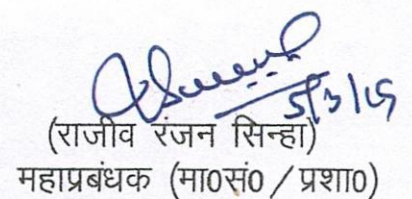 5/3/25
(राजीव रंजन सिन्हा)
महाप्रबंधक (मा0सं0 / प्रशा0)